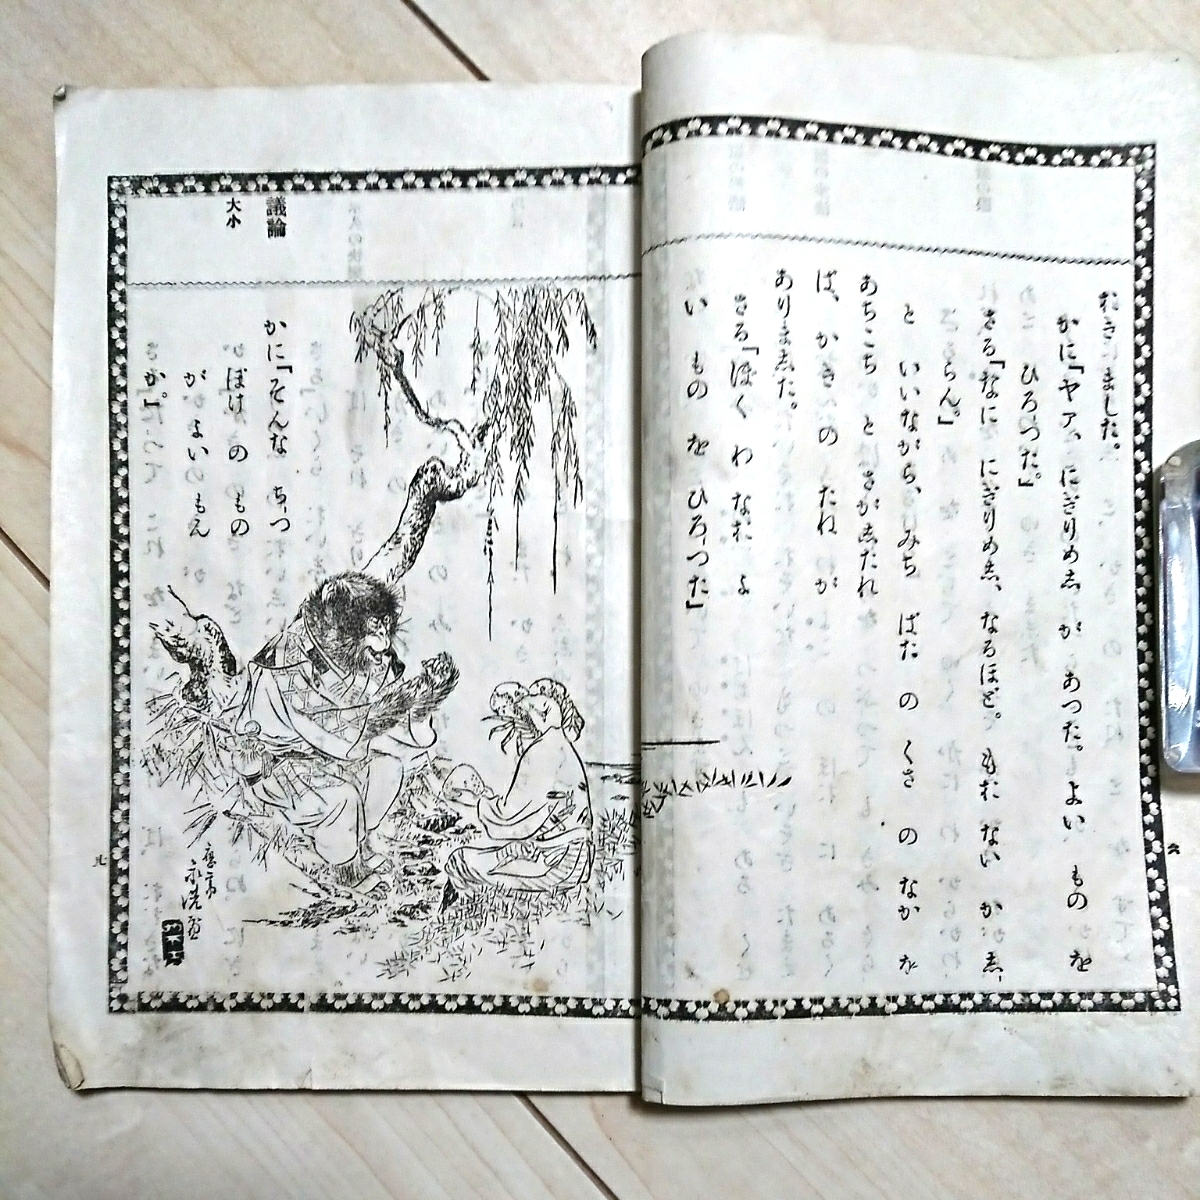 おきにました。
かに「ヤア、にぎりめし が あつた。よい もの を
ひろつた。」
さる「なに にぎりめし、なるほど。もた ない か し、
ごらん。」
と いいながら、みち ばた の くさ の なか を
あちこち と さがしたれ
ば、かき の たね が
ありました。
さる「ぼく わ なほ よ
い もの を ひろつた」
議論
大小
かに「そんな ちつ
ぽけ の もの
が よい もん
か。」
永洗画
九